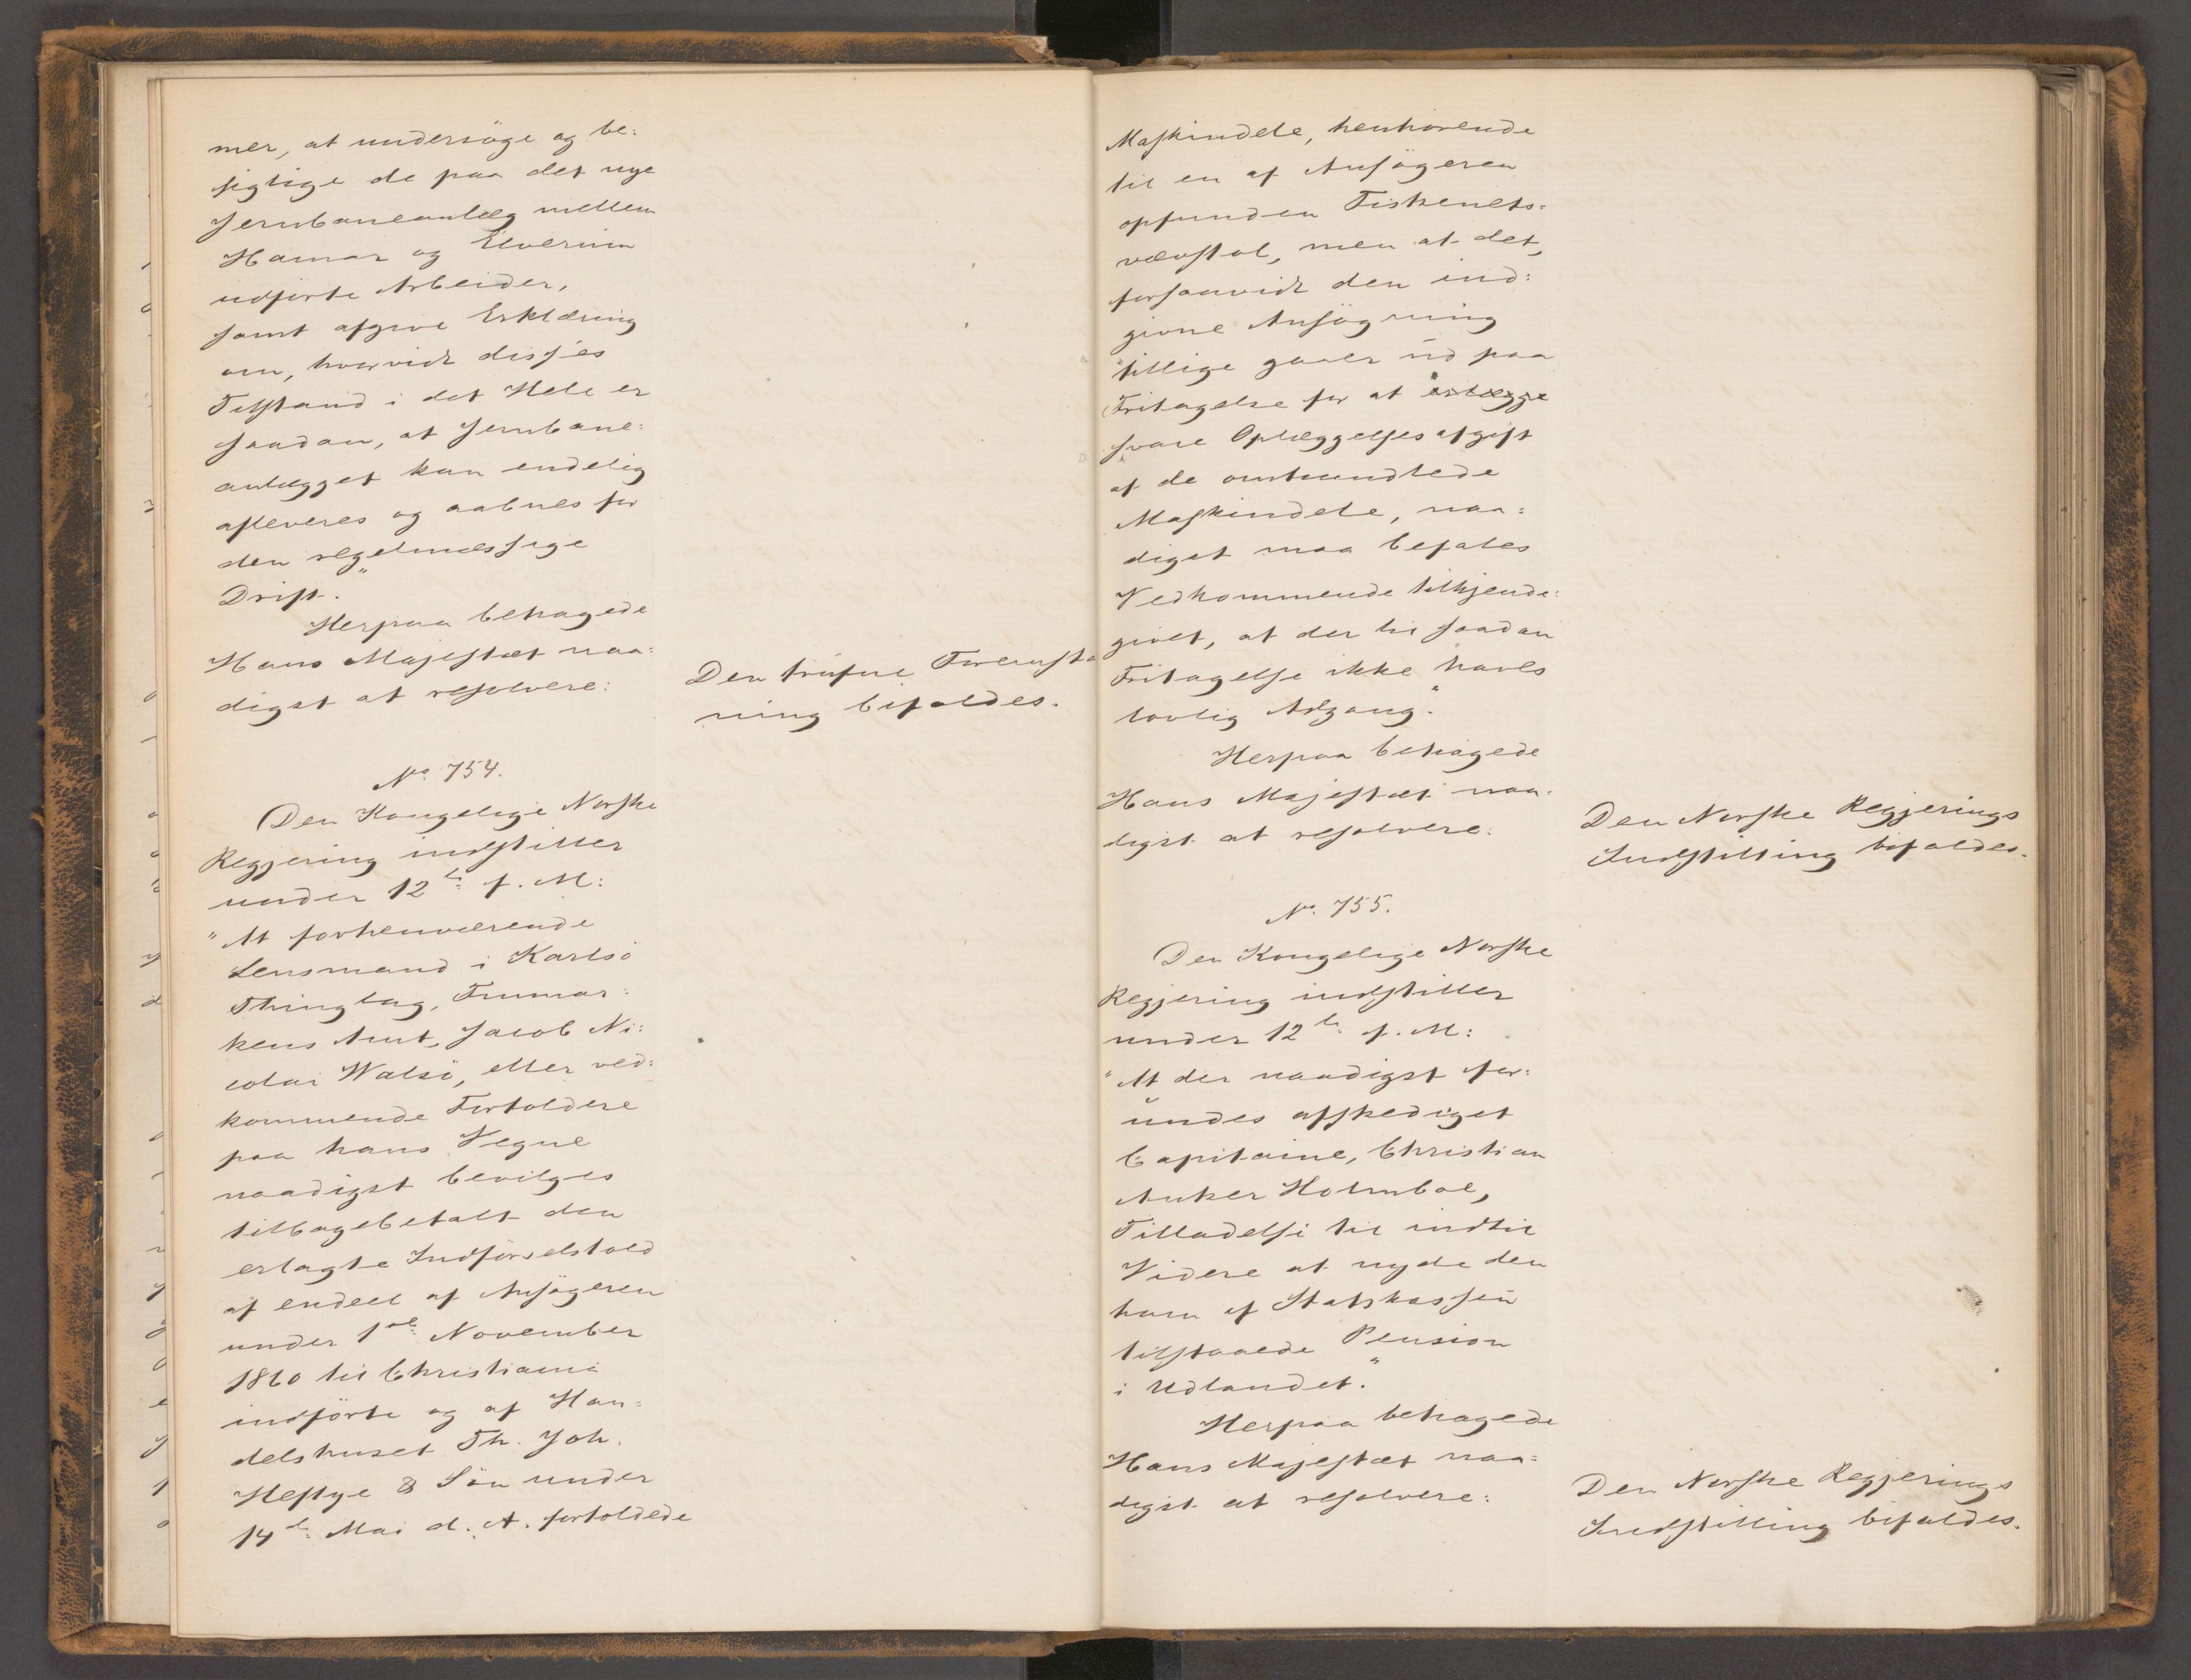 mer, at undersöge og be:
sigtige de paa det nye
Jernbaneanlæg mellem
Hamar og Elverum
udførte Arbeider,
samt afgive Erklæring
om, hvorvidt disses
Tilstand i det Hele er
saadan, at Jernbane:
anlægget kan endelig
afleveres og aabnes for
den regelmæssige
Drift."
Herpaa behagede
Hans Majestæt naa:
digst at resolvere:
Den trufne Foranstal
ning bifaldes.
No. 754.
Den Kongelige Norske
Regjering indstiller
under 12te f. M:
"At forhenværende
Lensmand i Karlsö
Thinglag, Finmar:
kens Amt, Jacob Ni:
colai Walsö, eller ved:
kommende Fortoldere
paa hans Vegne
naadigst bevilges
tilbagebetalt den
erlagte Indførselstold
af endeel af Ansögeren
under 1ste November
1860 til Christiania
indførte og af Han:
delshuset Th. Joh.
Heftye & Sön under
14de Mai d. A. fortoldede
Maskindele, henhørende
til en af Ansögeren
opfunden Fiskenets:
vævstol, men at det,
forsaavidt den ind:
givne Ansögning
tillige gaaer ud paa
Fritagelse for at erlægge
svare Oplæggelsesafgift
af de omhandlede
Maskindele, naa:
digst maa befales
Vedkommende tilkjende:
givet, at der til saadan
Fritagelse ikke haves
lovlig Adgang."
Herpaa behagede
Hans Majestæt naa:
digst at resolvere:
Den Norske Regjerings
Indstilling bifaldes.
No. 755.
Den Kongelige Norske
Regjering indstiller
under 12te f. M:
"At der naadigst for:
undes afskediget
Capitaine, Christian
Anker Holmboe,
Tilladelse til indtil
Videre at nyde den
ham af Statskassen
tilstaaede Pension
i Udlandet."
Herpaa behagede
Hans Majestæt naa:
digst at resolvere:
Den Norske Regjerings
Indstilling bifaldes.